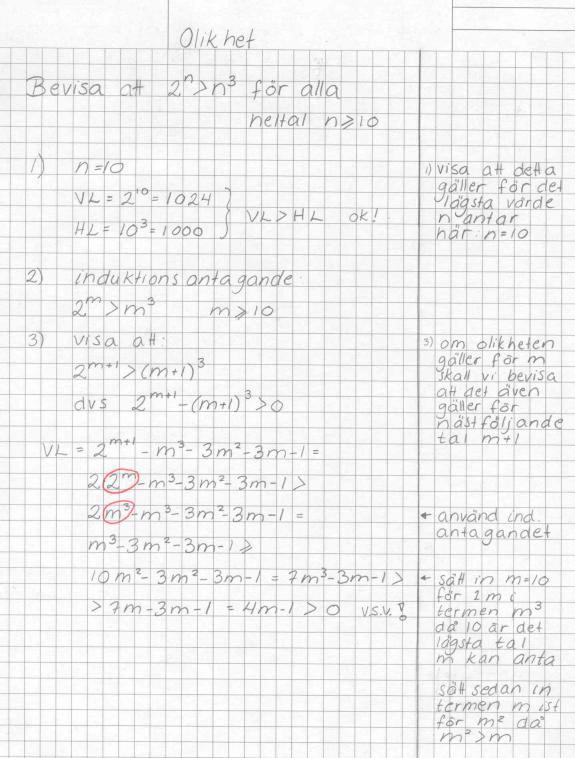 Olikhet
Bevisa att 2^n > n^3 för alla
heltal n ⩾ 10
1) n=10
VL = 2^10 = 1024
HL = 10^3 = 1000
VL > HL ok!
1) visa att detta
gäller för det
lägsta värde
n antar
här: n=10
2) induktionsantagande:
2^m > m^3 m ⩾ 10
3) visa att:
2^(m+1) > (m+1)^3
dvs 2^(m+1) - (m+1)^3 > 0
3) om olikheten
gäller för m
skall vi bevisa
att det även
gäller för
nästföljande
tal m+1
VL = 2^(m+1) - m^3 - 3m^2 - 3m - 1 =
2·2^m - m^3 - 3m^2 - 3m - 1 >
2m^3 - m^3 - 3m^2 - 3m - 1 =
← använd ind.
antagandet
m^3 - 3m^2 - 3m - 1 ⩾
10m^2 - 3m^2 - 3m - 1 = 7m^3 - 3m - 1 >
> 7m - 3m - 1 = 4m - 1 > 0 v.s.v.!
← sätt in m=10
för 1 m i
termen m^3
då 10 är det
lägsta tal
m kan anta
sätt sedan in
termen m ist
för m^2 då
m^2 > m